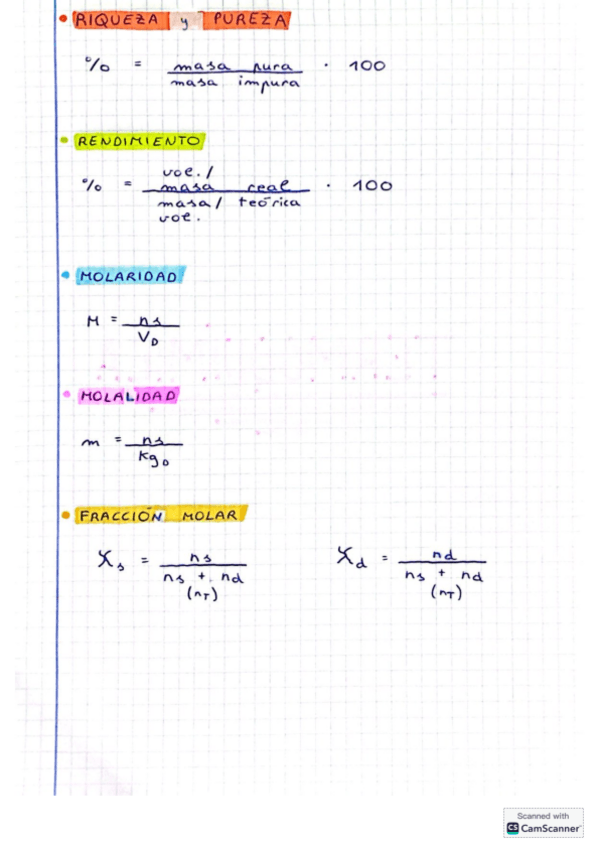 • RIQUEZA y PUREZA
% = masa pura / masa impura · 100
• RENDIMIENTO
% = vol. / masa real / masa / teórica vol. · 100
• MOLARIDAD
M = ns / VD
• MOLALIDAD
m = ns / KgD
• FRACCIÓN MOLAR
Xs = ns / ns + nd (nT)
Xd = nd / ns + nd (nT)
Scanned with
CS CamScanner